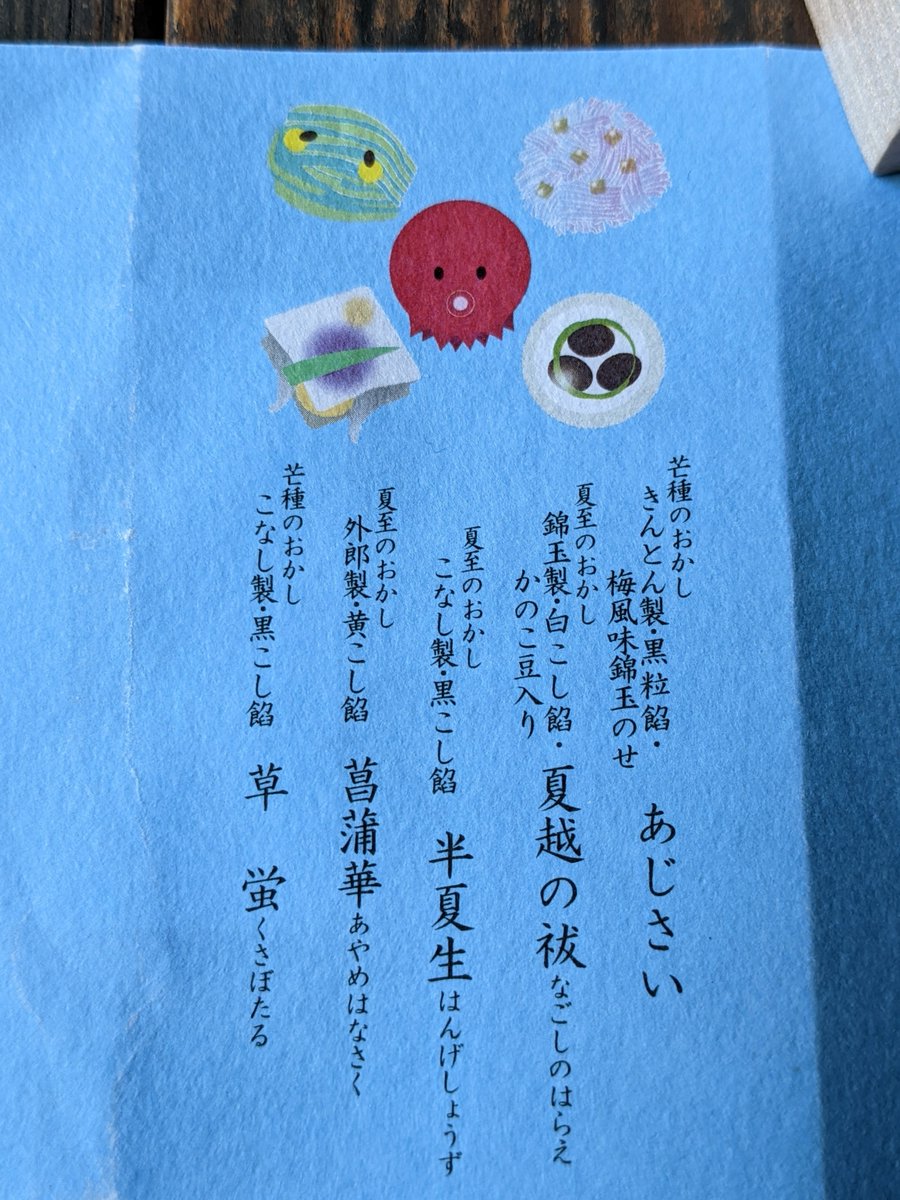 芒種のおかし
きんとん製・黒粒餡・
梅風味錦玉のせ
あじさい
夏至のおかし
錦玉製・白こし餡・
かのこ豆入り
夏越の祓なごしのはらえ
夏至のおかし
こなし製・黒こし餡
半夏生はんげしょうず
夏至のおかし
外郎製・黄こし餡
菖蒲華あやめはなさく
芒種のおかし
こなし製・黒こし餡
草蛍くさぼたる